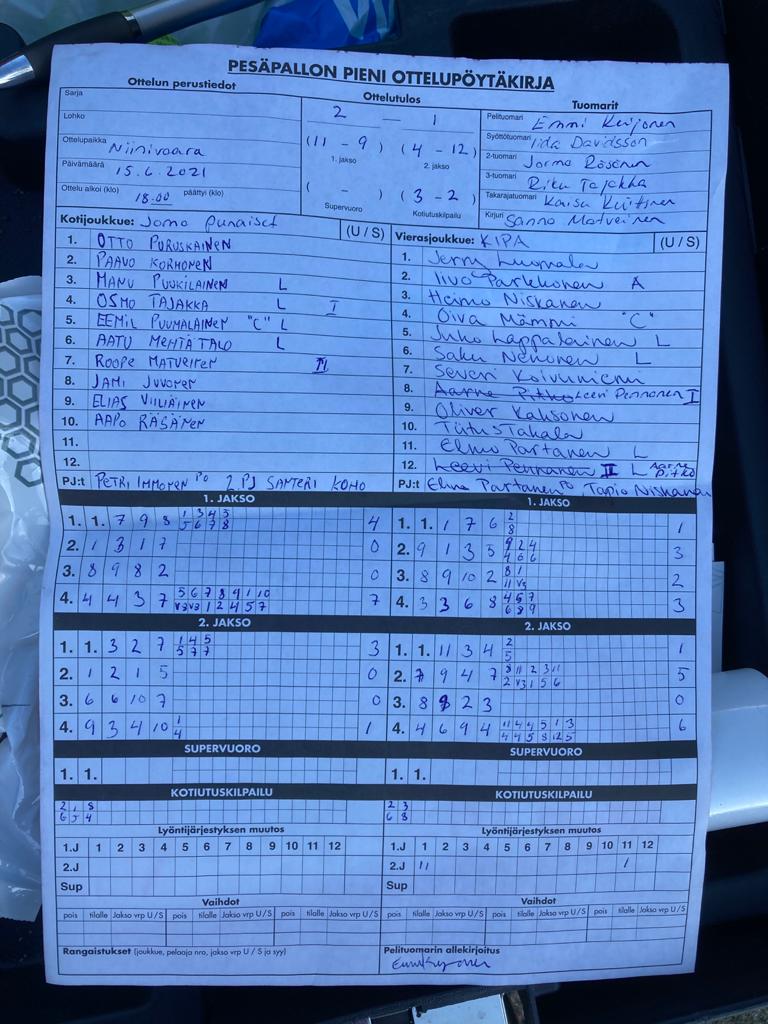 PESÄPALLON PIENI OTTELUPÖYTÄKIRJA
Ottelun perustiedot
Sarja
Lohko
Ottelupaikka Niinivaara
Päivämäärä 15.6.2021
Ottelu alkoi (klo) 18.00 päättyi (klo)
Ottelutulos
2 — 1
(11 - 9) (4 - 12)
1. jakso 2. jakso
( - ) (3 - 2)
Supervuoro Kotiutuskilpailu
Tuomarit
Pelituomari Emmi Keijonen
Syöttötuomari Iida Davidsson
2-tuomari Jorma Räsänen
3-tuomari Riku Tajakka
Takarajatuomari Kaisu
Kirjuri Sanna Matveinen
Kotijoukkue: Joma Punaiset (U / S)
1. OTTO PURUSKAINEN
2. PAAVO KORHONEN
3. MANU PUUKILAINEN L
4. OSMO TAJAKKA L I
5. EEMIL PUUMALAINEN "C" L
6. AATU MEHTÄTALO L
7. ROOPE MATVEINEN II
8. JAMI JUVONEN
9. ELIAS VIILIÄINEN
10. AAPO RÄSÄNEN
11.
12.
PJ:t PETRI IMMONEN PO 2PJ SANTERI KOHO
Vierasjoukkue: KIPA (U / S)
1. Jerry Luomala
2. Iivo Parkkonen A
3. Heimo Niskanen
4. Oiva Mämmi "C"
5. Juho Lappalainen L
6. Saku Nenonen L
7. Severi Koivuniemi
8. Aarne Pitko Leevi Pennanen I
9. Oliver Kaksonen
10. Tiitus Takala
11. Elmo Partanen L
12. Leevi Pennanen II L Aarne Pitko
PJ:t Elina Partanen PO, Tapio Niskanen
1. JAKSO
1. 1. 7 9 8 1 3 4 3 4
5 6 7 8
2. 1 3 1 7 0
3. 8 9 8 2 0
4. 4 4 3 7 5 6 7 8 9 1 10 7
V3 V3 1 2 4 5 7
1. JAKSO
1. 1. 1 7 6 2 1
8
2. 9 1 3 5 9 2 4 3
4 6 6
3. 8 9 10 2 8 1 2
11 V3
4. 3 3 6 8 4 5 7 3
6 8 9
2. JAKSO
1. 1. 3 2 7 1 4 5 3
5 7 7
2. 1 2 1 5 0
3. 6 6 10 7 0
4. 9 3 4 10 1 1
4
2. JAKSO
1. 1. 11 3 4 2 1
5
2. 7 9 4 7 8 11 2 3 11 5
2 V3 1 5 6
3. 8 8 2 3 0
4. 4 6 9 4 11 4 4 5 1 3 6
4 4 5 8 12 5
SUPERVUORO
1. 1.
SUPERVUORO
1. 1.
KOTIUTUSKILPAILU
2 1 8
6 5 4
KOTIUTUSKILPAILU
2 3
6 8
Lyöntijärjestyksen muutos
1.J 1 2 3 4 5 6 7 8 9 10 11 12
2.J
Sup
Lyöntijärjestyksen muutos
1.J 1 2 3 4 5 6 7 8 9 10 11 12
2.J 11 1
Sup
Vaihdot
pois tilalle Jakso vrp U / S pois tilalle Jakso vrp U / S pois tilalle Jakso vrp U / S
Vaihdot
pois tilalle Jakso vrp U / S pois tilalle Jakso vrp U / S pois tilalle Jakso vrp U / S
Rangaistukset (joukkue, pelaaja nro, jakso vrp U / S ja syy)
Pelituomarin allekirjoitus